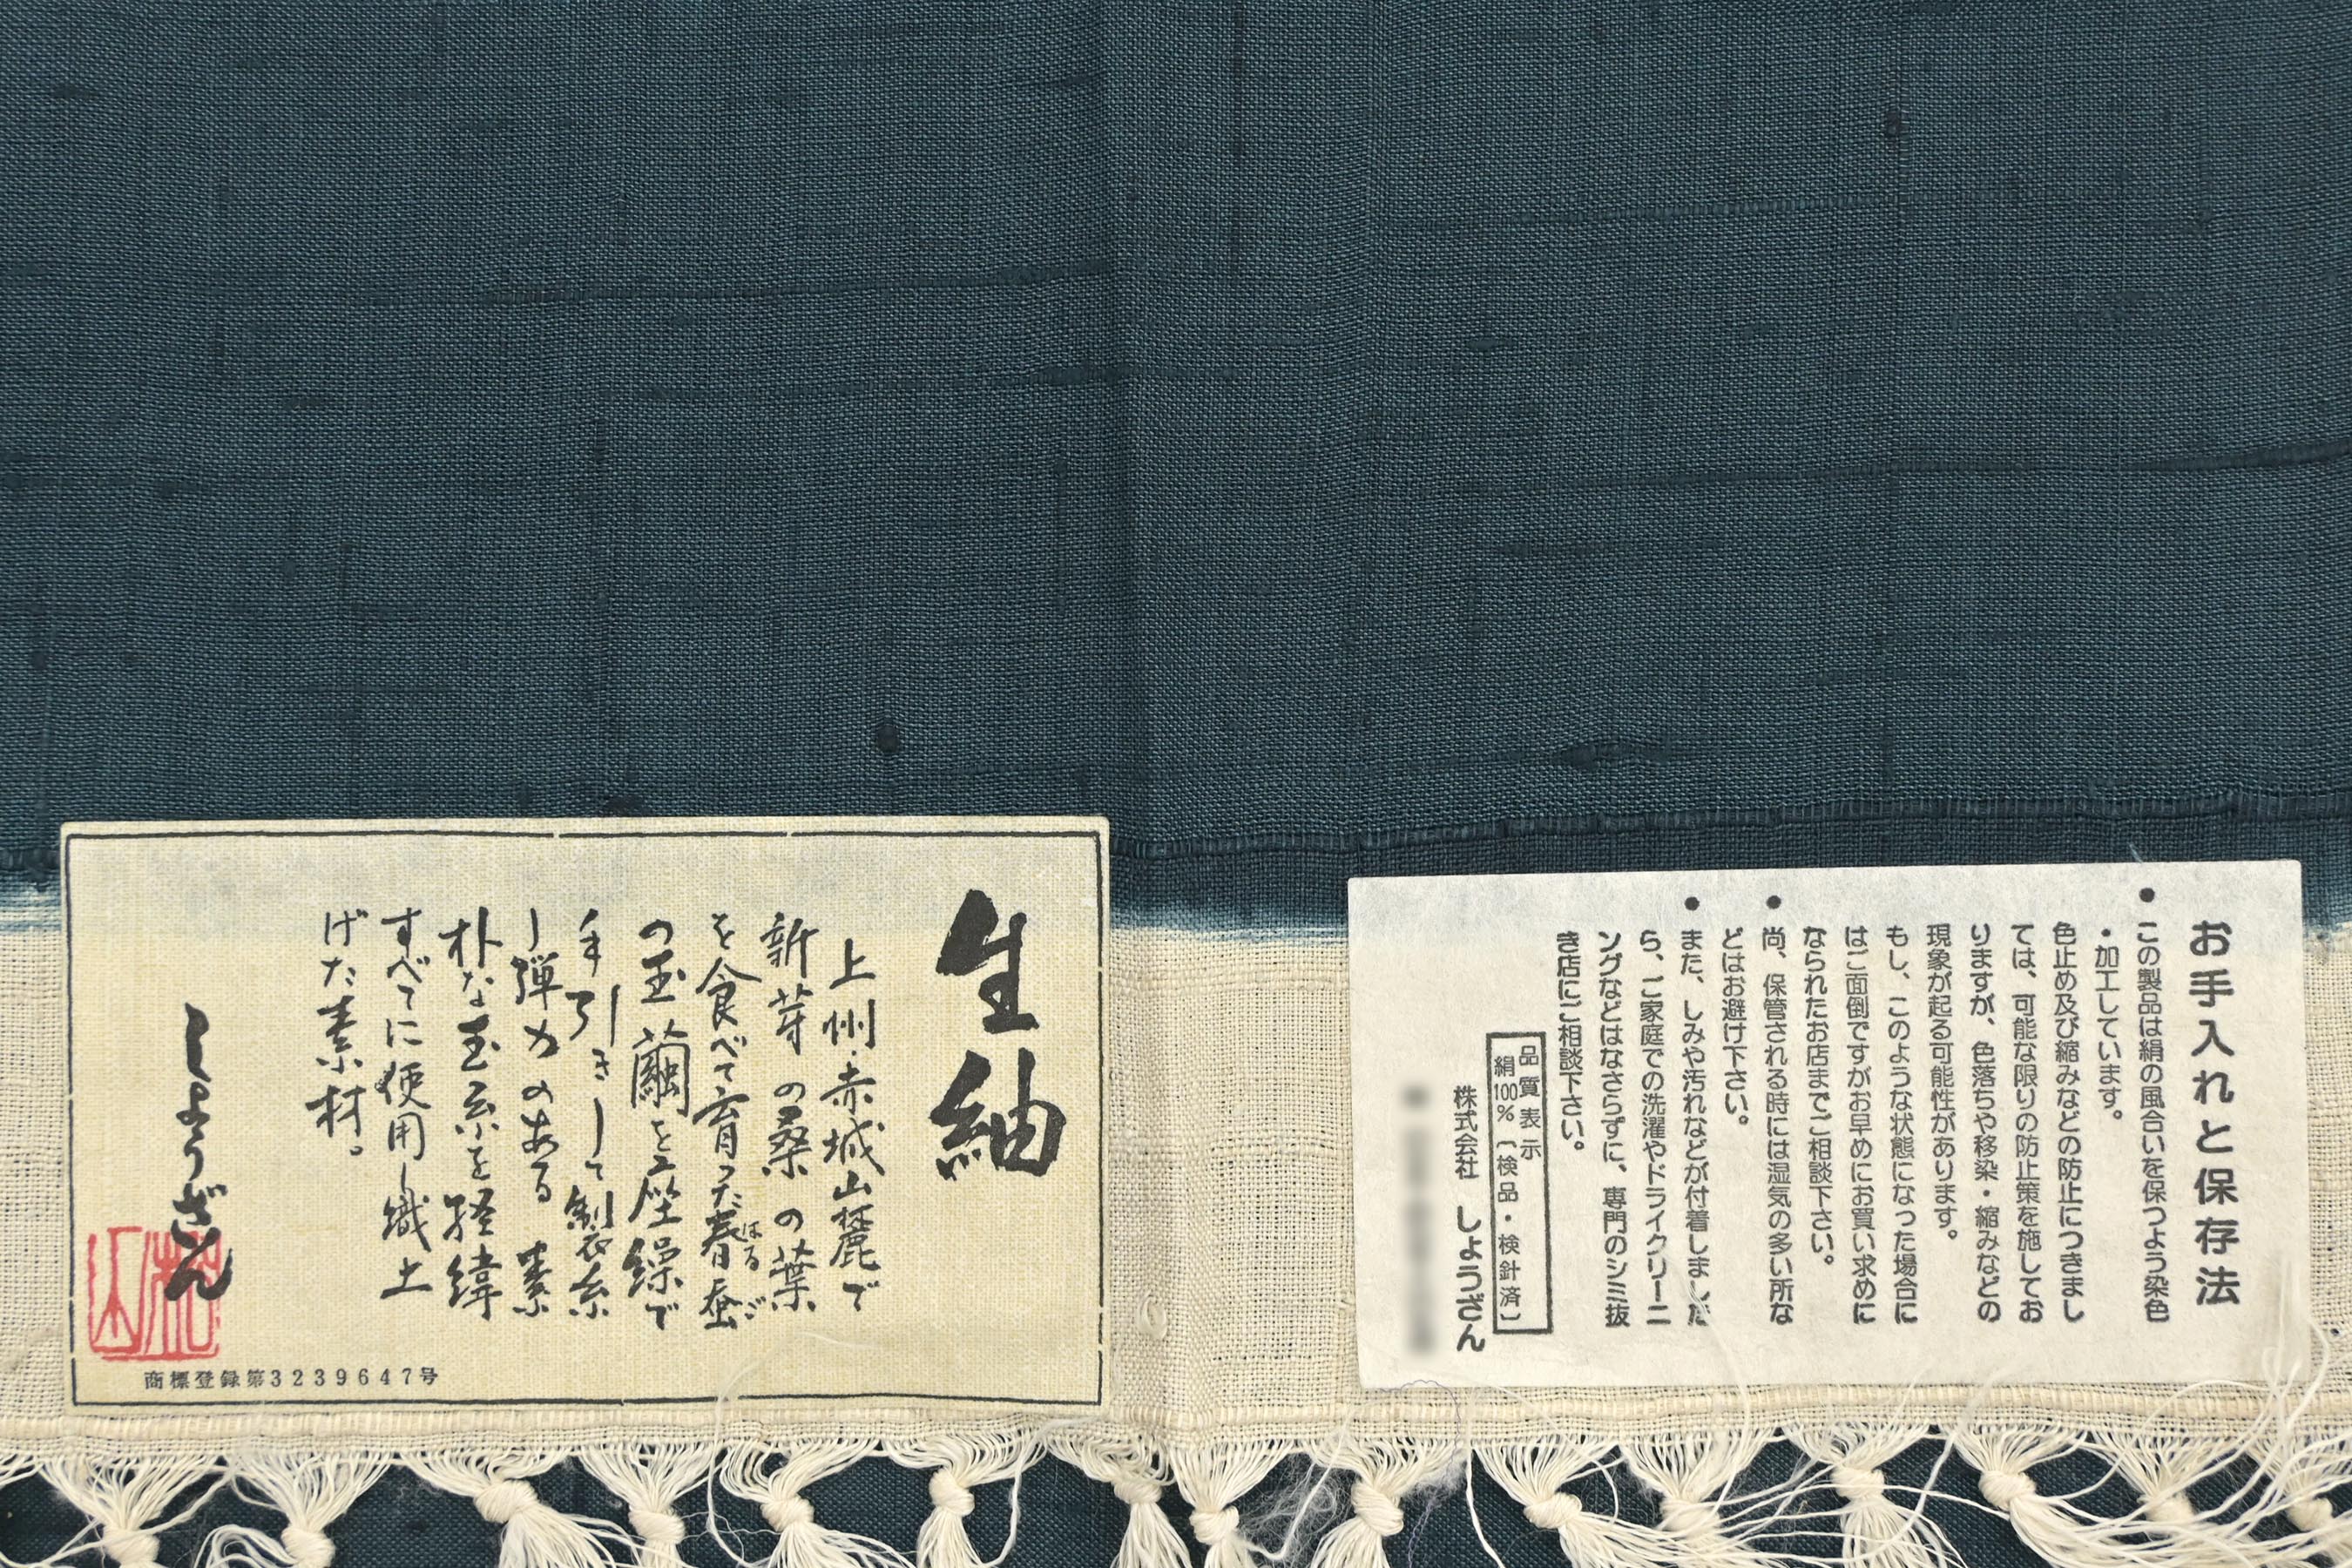 生紬
上州・赤城山麓で
新芽の桑の葉
を食べて育った春蚕
はるご
の玉繭を座繰で
手引きして製糸
し弾力のある素
朴な玉糸を経緯
すべてに使用し織上
げた素材。
しょうざん
松山
商標登録第3239647号
お手入れと保存法
●この製品は絹の風合いを保つよう染色
・加工しています。
色止め及び縮みなどの防止につきまし
ては、可能な限りの防止策を施してお
りますが、色落ちや移染・縮みなどの
現象が起る可能性があります。
もし、このような状態になった場合に
はご面倒ですがお早めにお買い求めに
なられたお店までご相談下さい。
●尚、保管される時には湿気の多い所な
どはお避け下さい。
●また、しみや汚れなどが付着しました
ら、ご家庭での洗濯やドライクリーニ
ングなどはなさらずに、専門のシミ抜
き店にご相談下さい。
品質表示
絹100%〔検品・検針済〕
株式会社 しょうざん